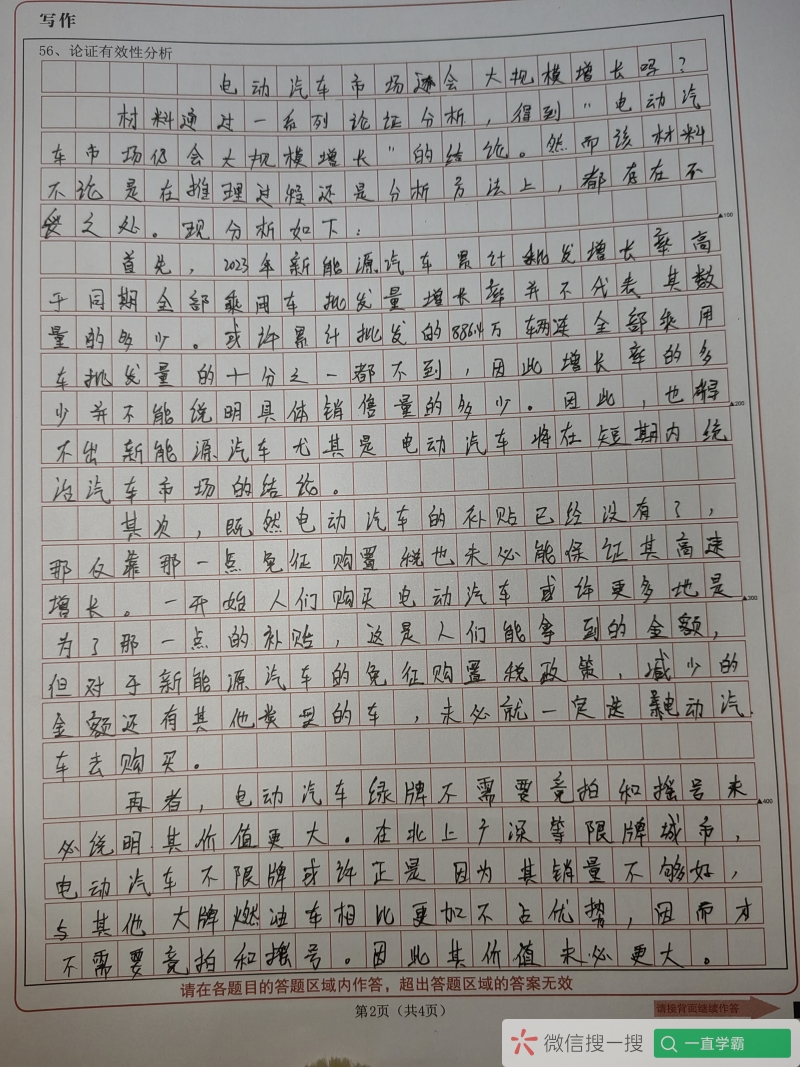 写作
56、论证有效性分析
电动汽车市场还会大规模增长吗?
材料通过一系列论证分析,得到"电动汽
车市场仍会大规模增长"的结论。然而该材料
不论是在推理过程还是分析方法上,都存在不
妥之处。现分析如下:
▲100
首先,2023年新能源汽车累计批发增长率高
于同期全部乘用车批发量增长率并不代表其数
量的多少。或许累计批发的886.4万辆连全部乘用
车批发量的十分之一都不到,因此增长率的多
少并不能说明具体销售量的多少。因此,也得
▲200
不出新能源汽车尤其是电动汽车将在短期内统
治汽车市场的结论。
其次,既然电动汽车的补贴已经没有了,
那仅靠那一点免征购置税也未必能保证其高速
增长。一开始人们购买电动汽车或许更多地是
▲300
为了那一点的补贴,这是人们能拿到的金额,
但对于新能源汽车的免征购置税政策,减少的
金额还有其他类型的车,未必就一定选电动汽
车去购买。
再者,电动汽车绿牌不需要竞拍和摇号未
▲400
必说明其价值更大。在北上广深等限牌城市,
电动汽车不限牌或许正是因为其销量不够好,
与其他大牌燃油车相比更加不占优势,因而才
不需要竞拍和摇号。因此其价值未必更大。
请在各题目的答题区域内作答,超出答题区域的答案无效
第2页(共4页)
请接背面继续作答
微信搜一搜
一直学霸